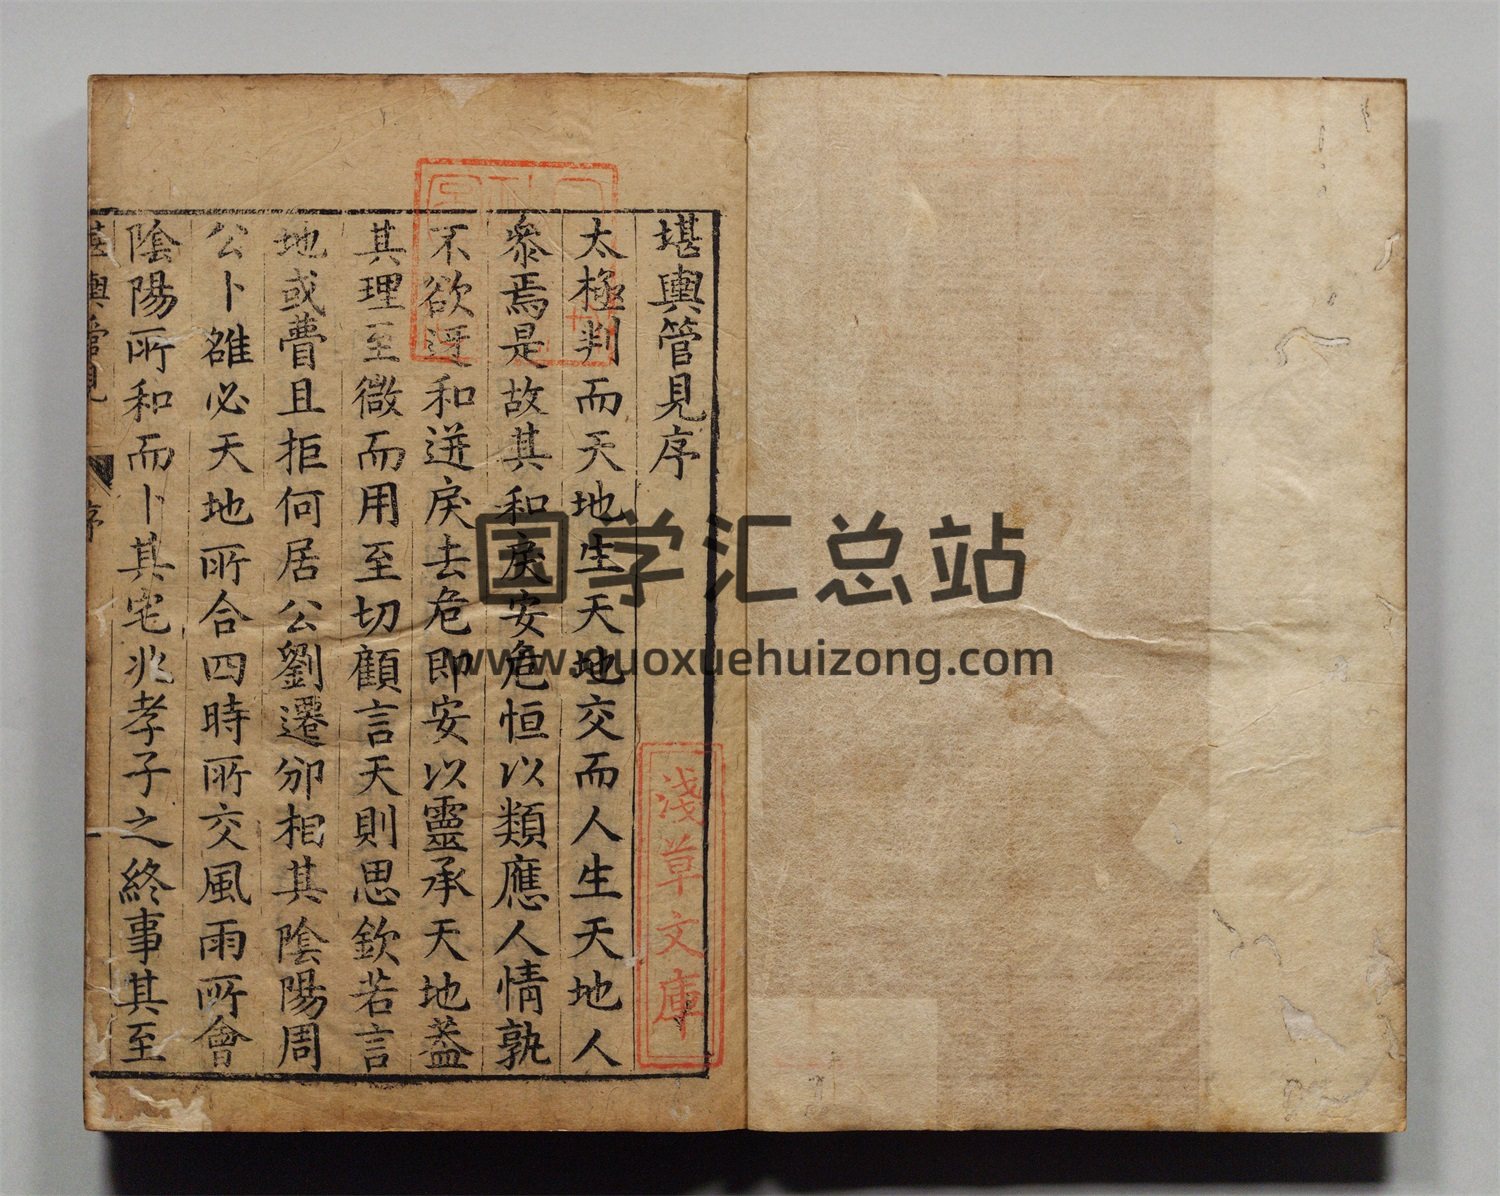 堪輿管見序
太極判而天地生天地交而人生天地人
叅焉是故其和戾安危恒以類應人情孰
不欲迓和迸戾去危即安以靈承天地葢
其理至微而用至切顧言天則思欽若言
地或瞢且拒何居公劉遷邠相其陰陽周
公卜雒必天地所合四時所交風雨所會
陰陽所和而卜其宅兆孝子之終事其至
堪輿管見
序
淺草文庫
国学汇总站
www.guoxuehuizong.com